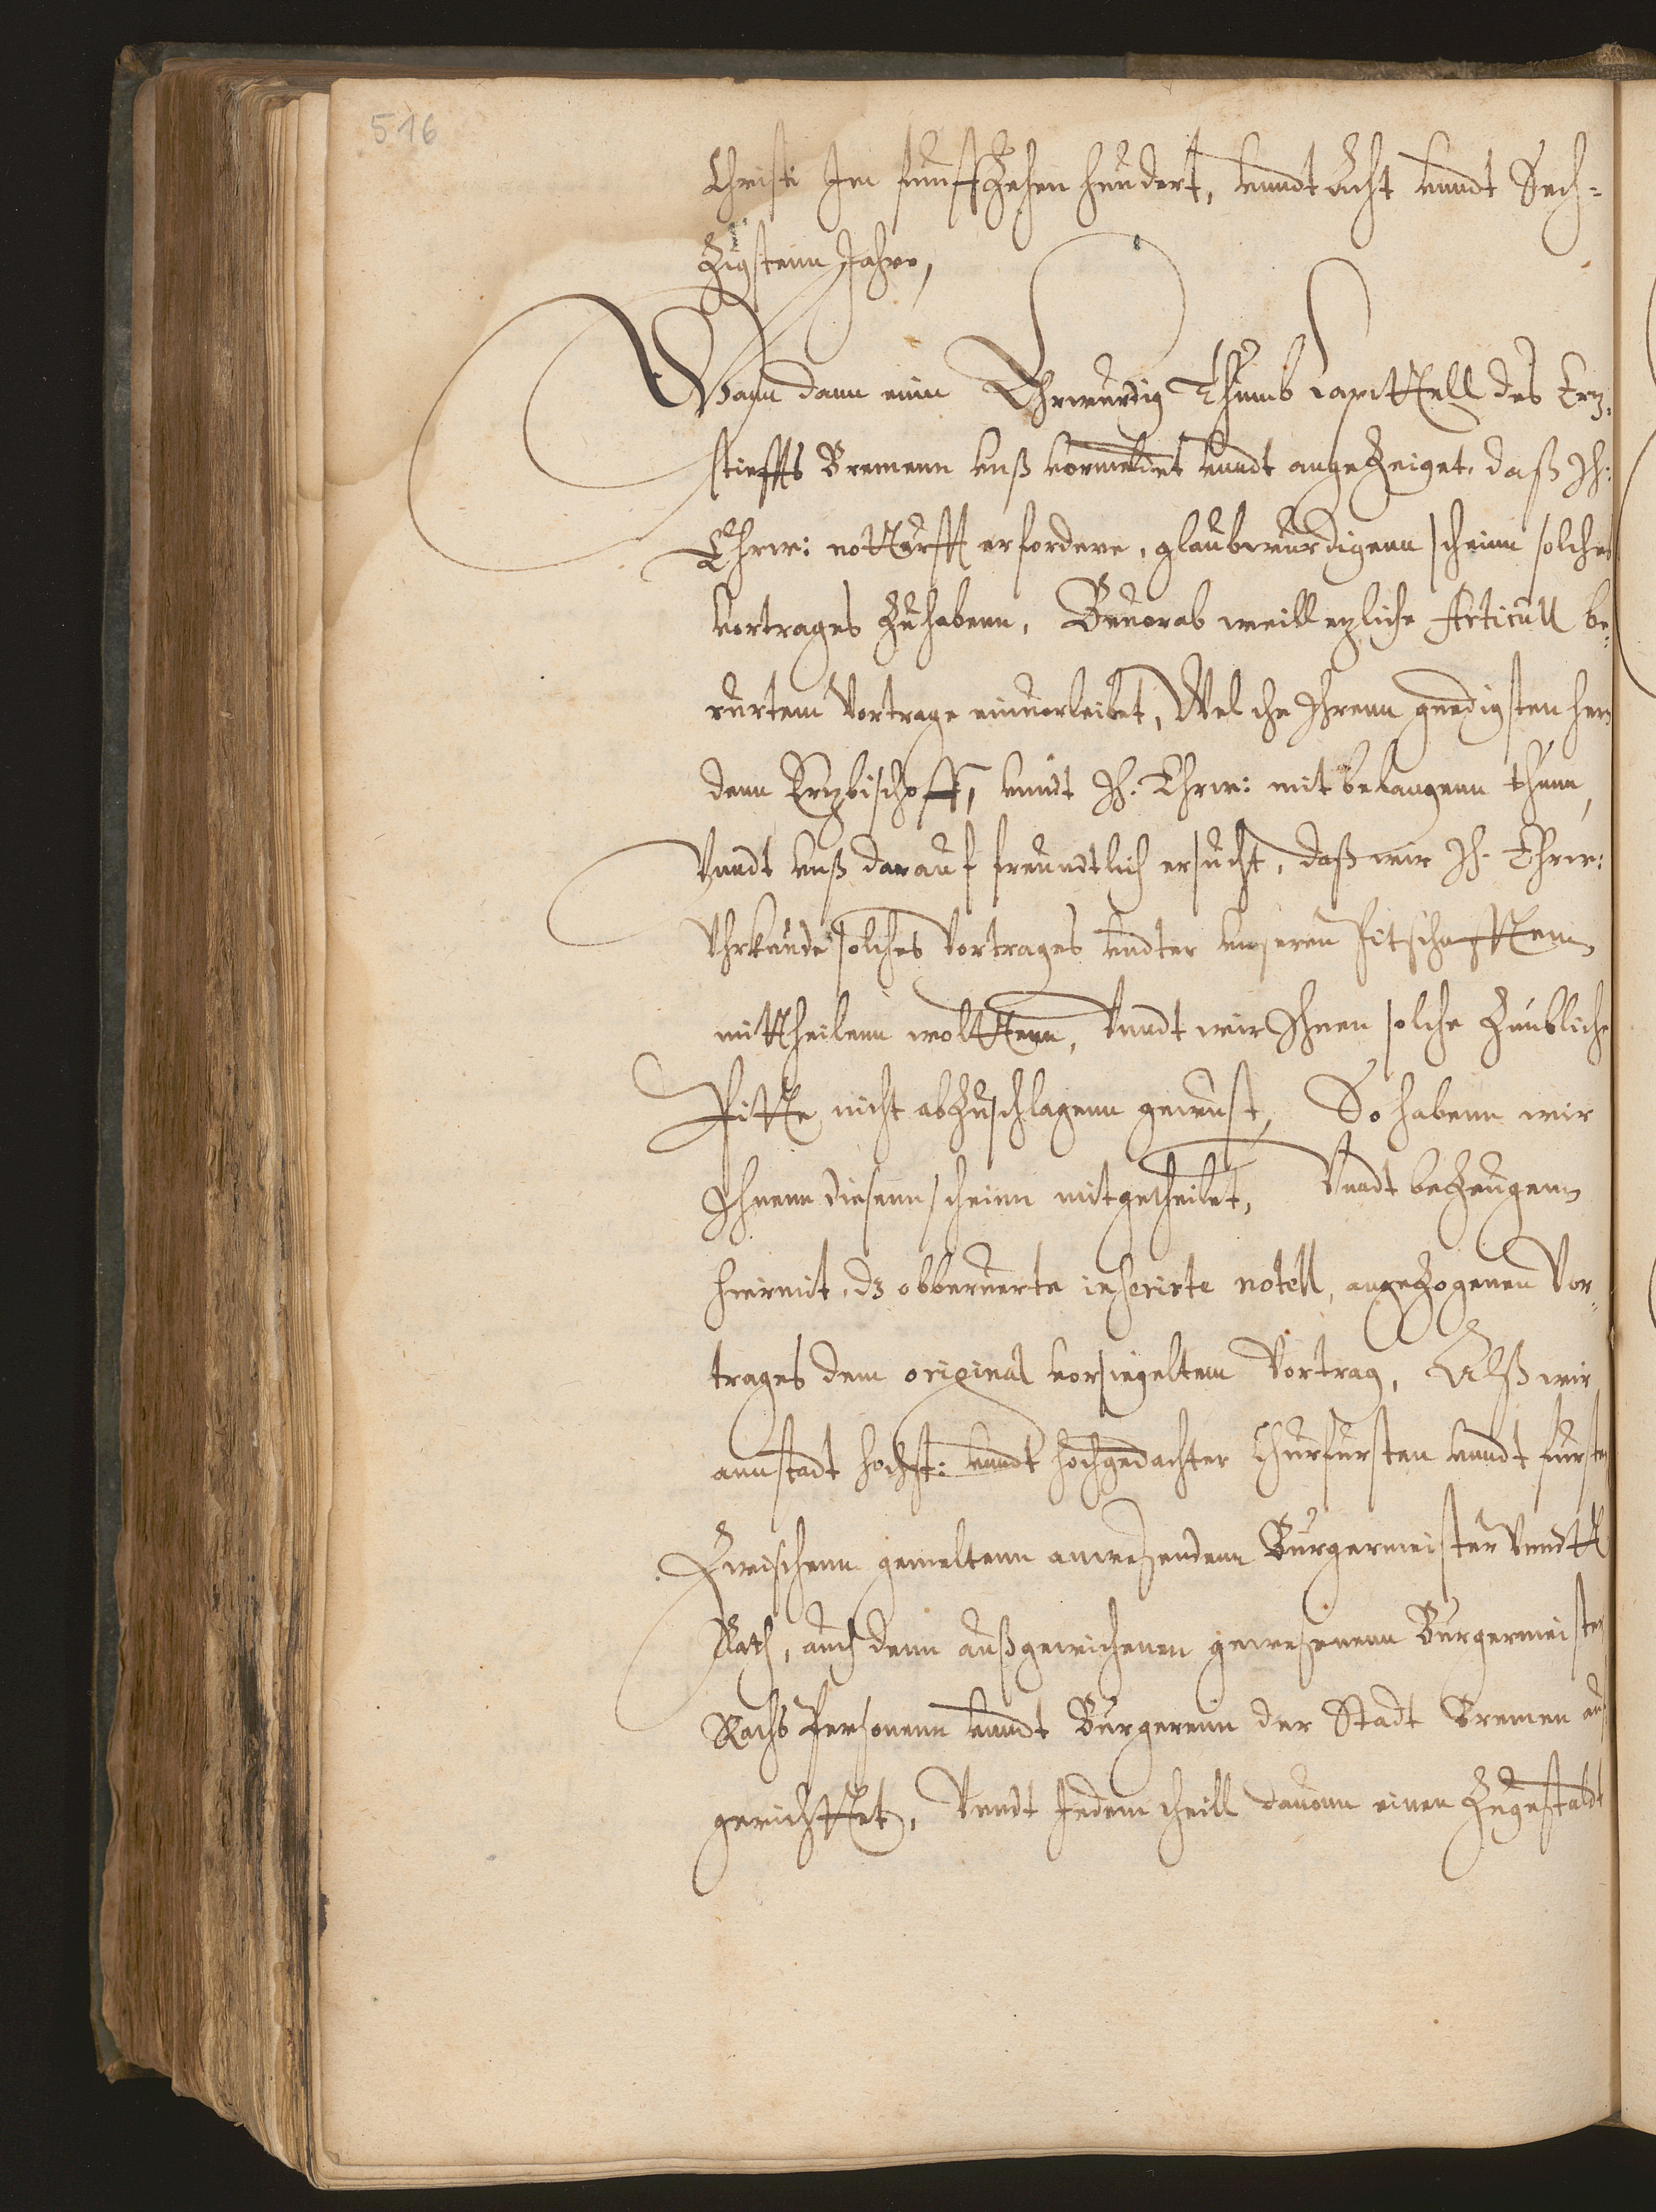 516
Christi Im funfftzehen hundert, vnndt Acht vnndt Sech-
zigstenn Jahre,
Wann dann einn Ehrwurdig Thumb Capittell des Ertz-
stiffts Bremenn vnß vormeldet vnndt angezeiget, daß Ih:
Ehrw: notturfft erfordere, glaubwurdigenn scheinn solches
Vortrages zuhabenn, Beuorab weill etzliche Articull be-
rurtem Vortrage einuorleibet, Welche Ihrenn gnedigsten hern
denn Ertzbischoff, vnndt Ih. Ehrw: mit belangenn thunn,
Vnndt vnß darauf freundtlich ersucht, daß wir Ih. Ehrw:
Vhrkunde solches Vortrages vndter vnseren Pitschafften
mittheilenn woltten, Vnndt wir Ihnen solche zimbliche
Pitte nicht abzuschlagenn gewust, So habenn wir
Ihnenn diesenn scheinn mitgetheilet, Vnndt bezeugenn
hiermit, dz obberuerte inserirte notell, angezogenen Vor-
trages dem original vorsiegeltem Vortrag, Alß wir
annstadt hochst: vnndt hochgedachter Churfursten vnndt fursten
Zwischenn gemeltenn anwesendenn Burgermeister vnndt
Rath, auch denn außgewichenen gewesenenn Burgermeister
Raths Personenn vnndt Burgerenn der Stadt Bremen auf
gerichttet, Vnndt Jedem theill dauonn einen zugestaldt